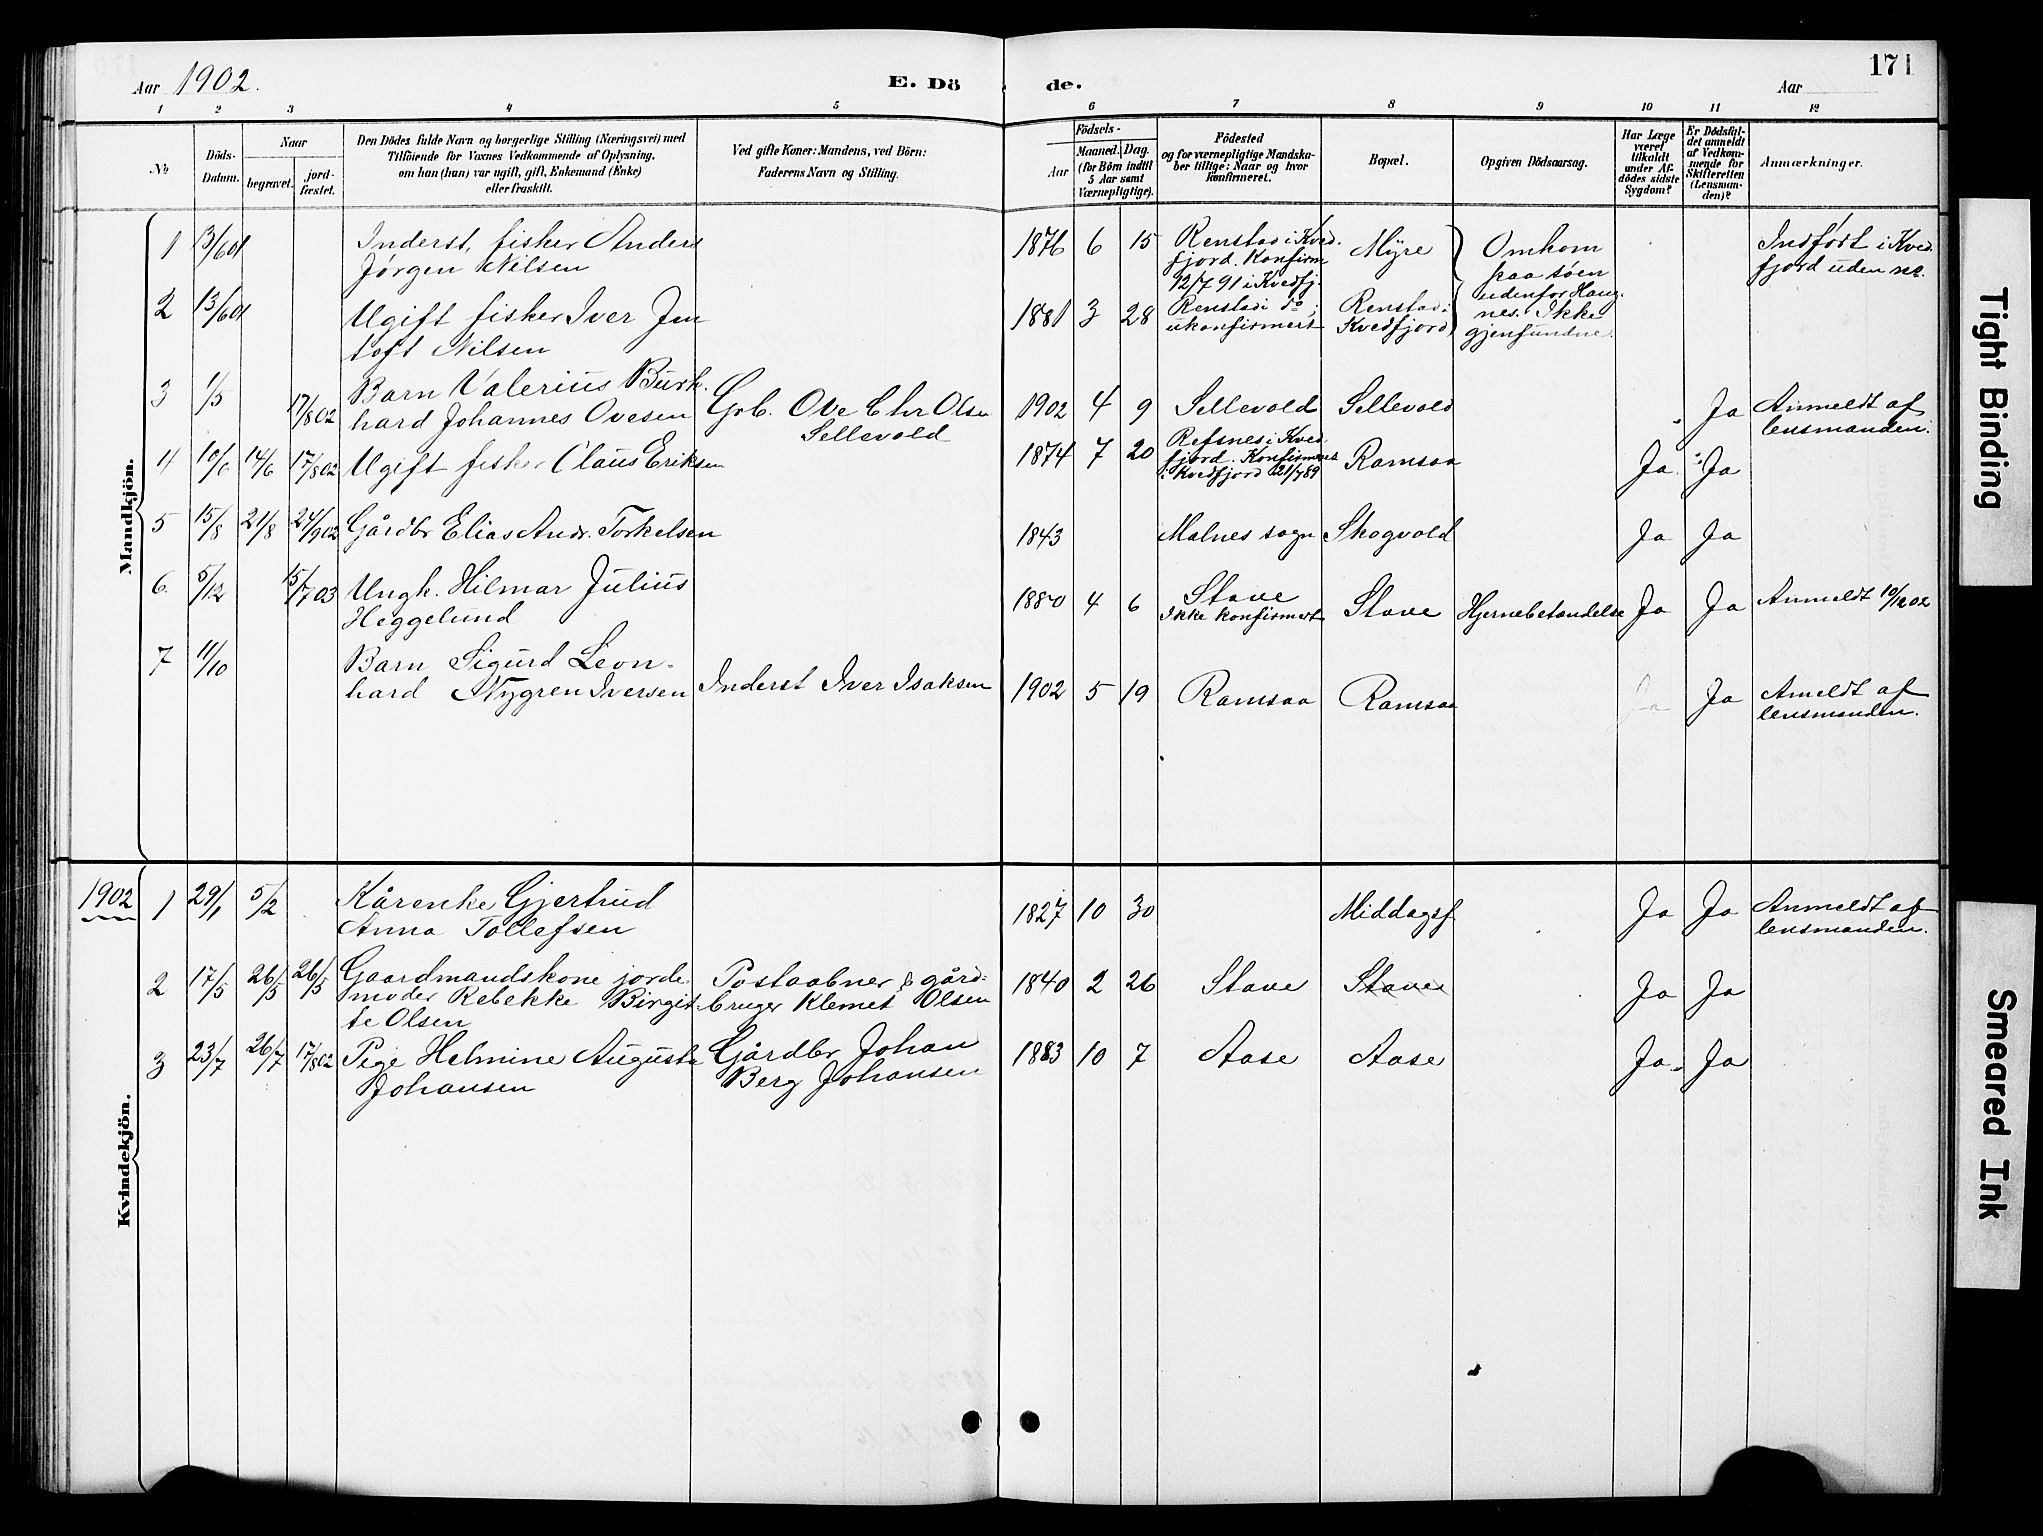 Aar 1902.
E. Dö
de.
171
Aar
1 2 3 4 5 6 7 8 9 10 11 12
No
Döds-
Datum.
Naar
begravet.
jord-
fæstet.
Den Dödes fulde Navn og borgerlige Stilling (Næringsvei) med
Tilföiende for Voxnes Vedkommende af Oplysning,
om han (hun) var ugift, gift, Enkemand (Enke)
eller fraskilt.
Ved gifte Koner: Mandens, ved Börn:
Faderens Navn og Stilling.
Födsels-
Aar
Maaned. Dag.
(for Börn indtil
5 Aar samt
Værnepligtige).
Födested
og for værnepligtige Mandska-
ber tillige: Naar og hvor
konfirmeret.
Bopæl.
Opgiven Dödsaarsag.
Har Læge
været
tilkaldt
under Af-
dödes sidste
Sygdom?
Er Dödsfal-
det anmeldt
af Vedkom-
mende for
Skifteretten
(Lensman-
den)?
Anmærkninger.
Mandkjön.
1 13/6 01 Inderst, fisker Anders 1876 6 15 Renstad i Kved- Myre Omkom Indført i Kved
Jørgen Nilsen fjord. Konfirm paa søen fjord uden no.
12/7 91 i Kvedfj. udenfor Haug-
2 13/6 01 Ugift fisker Iver Jen 1881 3 28 Renstad i do; Renstad i nes. Ikke
toft Nilsen ukonfirmert Kvedfjord gjenfundne.
3 1/5 17/8 02 Barn Valerius Burk-
hard Johannes Ovesen Grb. Ove Chr Olsen 1902 4 9 Sellevold Sellevold Ja Anmeldt af
Sellevold lensmanden.
4 10/6 14/6 17/8 02 Ugift fisker Claus Eriksen 1874 7 20 Refsnes i Kved Ramsaa Ja Ja
fjord. Konfirmert
i Kvedfjord 21/7 89
5 15/8 21/8 24/9 02 Gårdbr Elias Andr. Torkelsen 1843 Malnes sogn Skogvold Ja Ja
6. 5/12 15/7 03 Ungk. Hilmar Julius 1880 4 6 Stave Stave Hjernebetændelse Ja Ja Anmeldt 10/12 02
Heggelund Ikke konfirmert
7 11/10 Barn Sigurd Leon-
hard Nygren Iversen Inderst Iver Isaksen 1902 5 19 Ramsaa Ramsaa Ja Ja Ameldt af
lensmanden.
Kvindekjön.
1902 1 29/1 5/2 Kårenke Gjertrud 1827 10 30 Middagsf Ja Ja Anmeldt af
Anna Tollefsen lensmanden.
2 17/5 26/5 26/5 Gaardmandskone jorde- Postaabner & gård- 1840 2 26 Stave Stave Ja Ja
moder Rebekke Birgit- bruger Klemet Olsen
te Olsen
3 23/7 26/7 17/8 02 Pige Helmine Augusta Gårdbr Johan 1883 10 7 Aase Aase Ja Ja
Johansen Berg Johansen
Tight Binding
Smeared Ink